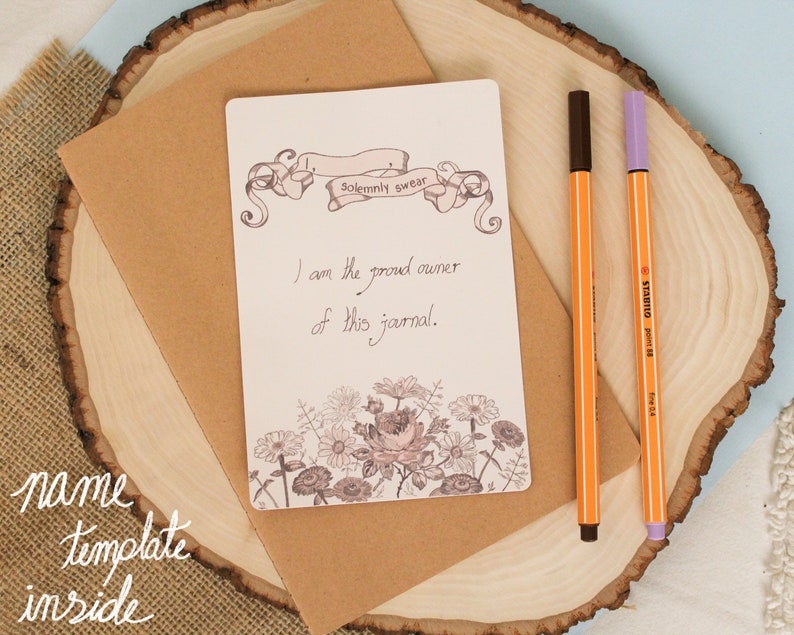 I, ,
solemnly swear
I am the proud owner
of this journal.
STABILO point 88 fine 0.4
name
template
inside